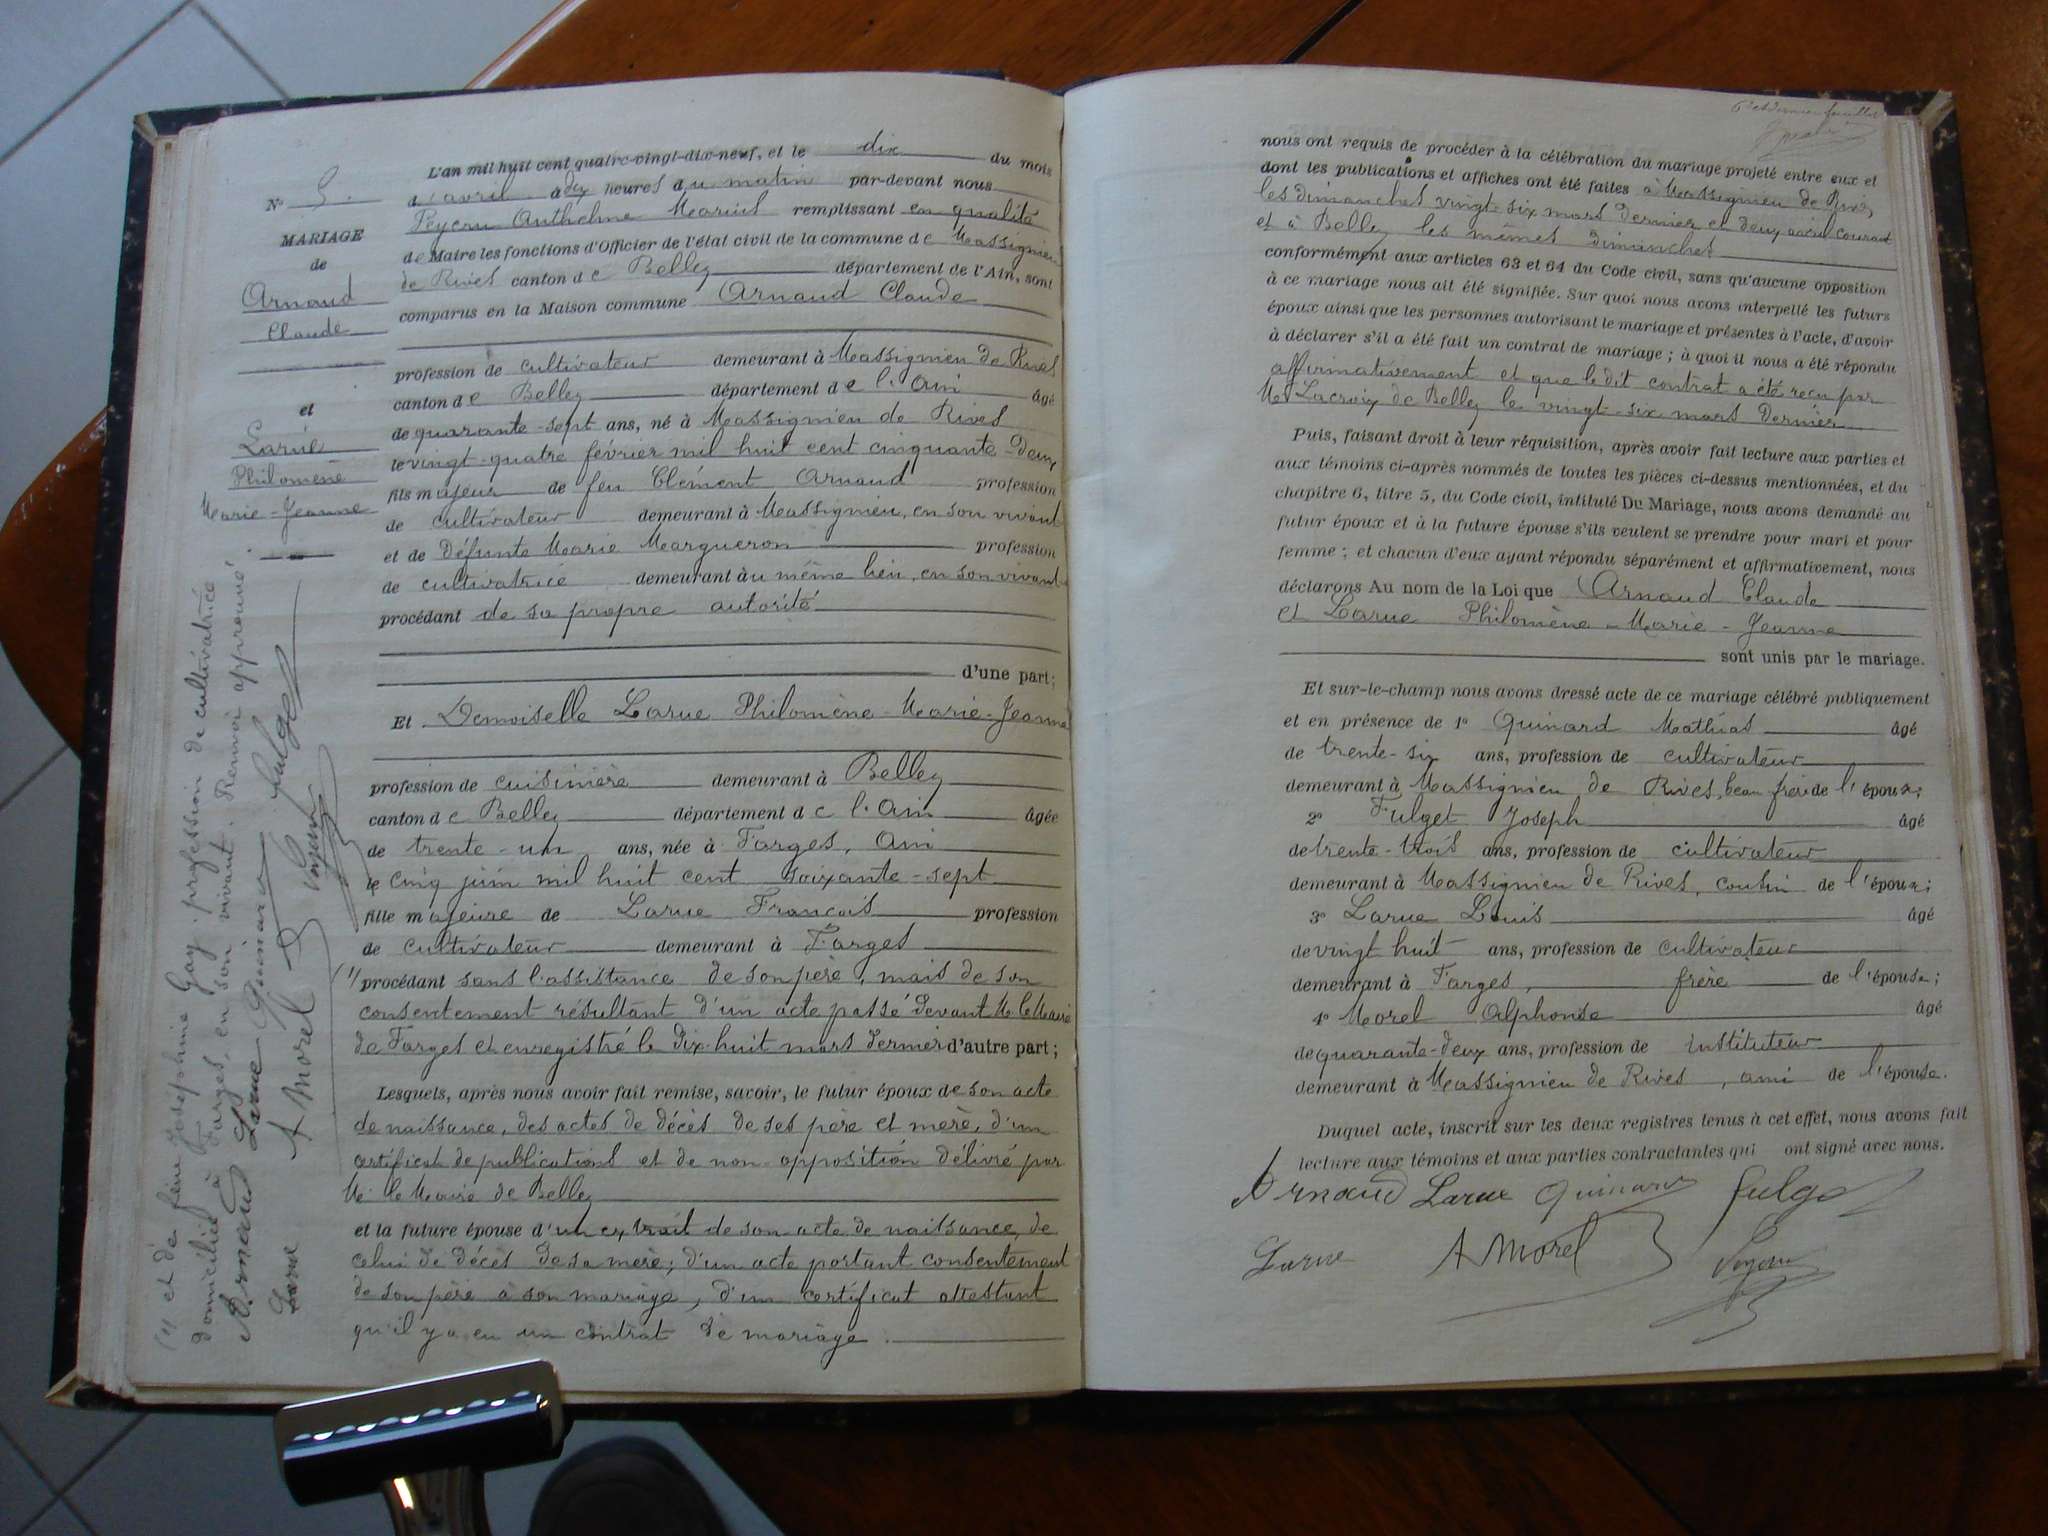 L'an mil huit cent quatre-vingt-dix-neuf, et le dix du mois
d'avril à dix heures du matin par-devant nous
Peycru Anthelme Marius remplissant en qualité
de Maire les fonctions d'Officier de l'état civil de la commune de Massignieu
de Rives canton de Belley département de l'Ain, sont
comparus en la Maison commune Arnaud Claude
profession de cultivateur demeurant à Massignieu de Rives
canton de Belley département de l'Ain âgé
de quarante-sept ans, né à Massignieu de Rives
le vingt-quatre février mil huit cent cinquante-deux
fils majeur de feu Clément Arnaud profession
de cultivateur demeurant à Massignieu, en son vivant
et de défunte Marie Margueron profession
de cultivatrice demeurant au même lieu, en son vivant
procédant de sa propre autorité
d'une part;
Et Demoiselle Larue Philomène-Marie-Jeanne
profession de cuisinière demeurant à Belley
canton de Belley département de l'Ain âgée
de trente-un ans, née à Farges, Ain
le cinq juin mil huit cent soixante-sept
fille majeure de Larue François profession
de cultivateur demeurant à Farges
1) procédant sans l'assistance de son père, mais de son
consentement résultant d'un acte passé devant M. le Maire
de Farges et enregistré le dix-huit mars dernier d'autre part;
Lesquels, après nous avoir fait remise, savoir, le futur époux de son acte
de naissance, des actes de décès de ses père et mère, d'un
certificat de publications et de non-opposition délivré par
M. le Maire de Belley
et la future épouse d'un extrait de son acte de naissance, de
celui de décès de sa mère; d'un acte portant consentement
de son père à son mariage, d'un certificat attestant
qu'il y a eu un contrat de mariage.
N° 5.
MARIAGE
de
Arnaud
Claude
et
Larue
Philomène
Marie-Jeanne
(1) et de feue Joséphine Gay profession de cultivatrice
domiciliée à Farges, en son vivant. Renvoi approuvé.
Arnaud Larue Quinard fulget
Larue A Morel
nous ont requis de procéder à la célébration du mariage projeté entre eux et
dont les publications et affiches ont été faites à Massignieu de Rives,
les dimanches vingt-six mars dernier et deux avril courant
et à Belley les mêmes dimanches
conformément aux articles 63 et 64 du Code civil, sans qu'aucune opposition
à ce mariage nous ait été signifiée. Sur quoi nous avons interpellé les futurs
époux ainsi que les personnes autorisant le mariage et présentes à l'acte, d'avoir
à déclarer s'il a été fait un contrat de mariage; à quoi il nous a été répondu
affirmativement et que le dit contrat a été reçu par
Me Lacroix de Belley le vingt-six mars dernier
Puis, faisant droit à leur réquisition, après avoir fait lecture aux parties et
aux témoins ci-après nommés de toutes les pièces ci-dessus mentionnées, et du
chapitre 6, titre 5, du Code civil, intitulé Du Mariage, nous avons demandé au
futur époux et à la future épouse s'ils veulent se prendre pour mari et pour
femme; et chacun d'eux ayant répondu séparément et affirmativement, nous
déclarons Au nom de la Loi que Arnaud Claude
et Larue Philomène-Marie-Jeanne
sont unis par le mariage.
Et sur-le-champ nous avons dressé acte de ce mariage célébré publiquement
et en présence de 1° Quinard Mathias âgé
de trente-six ans, profession de cultivateur
demeurant à Massignieu de Rives, beau frère de l'époux;
2° Fulget Joseph âgé
de trente-trois ans, profession de cultivateur
demeurant à Massignieu de Rives, cousin de l'époux;
3° Larue Louis âgé
de vingt huit ans, profession de cultivateur
demeurant à Farges, frère de l'épouse;
4° Morel Alphonse âgé
de quarante-deux ans, profession de instituteur
demeurant à Massignieu de Rives, ami de l'épouse.
Duquel acte, inscrit sur les deux registres tenus à cet effet, nous avons fait
lecture aux témoins et aux parties contractantes qui ont signé avec nous.
Arnaud Larue Quinard fulget
Larue A Morel